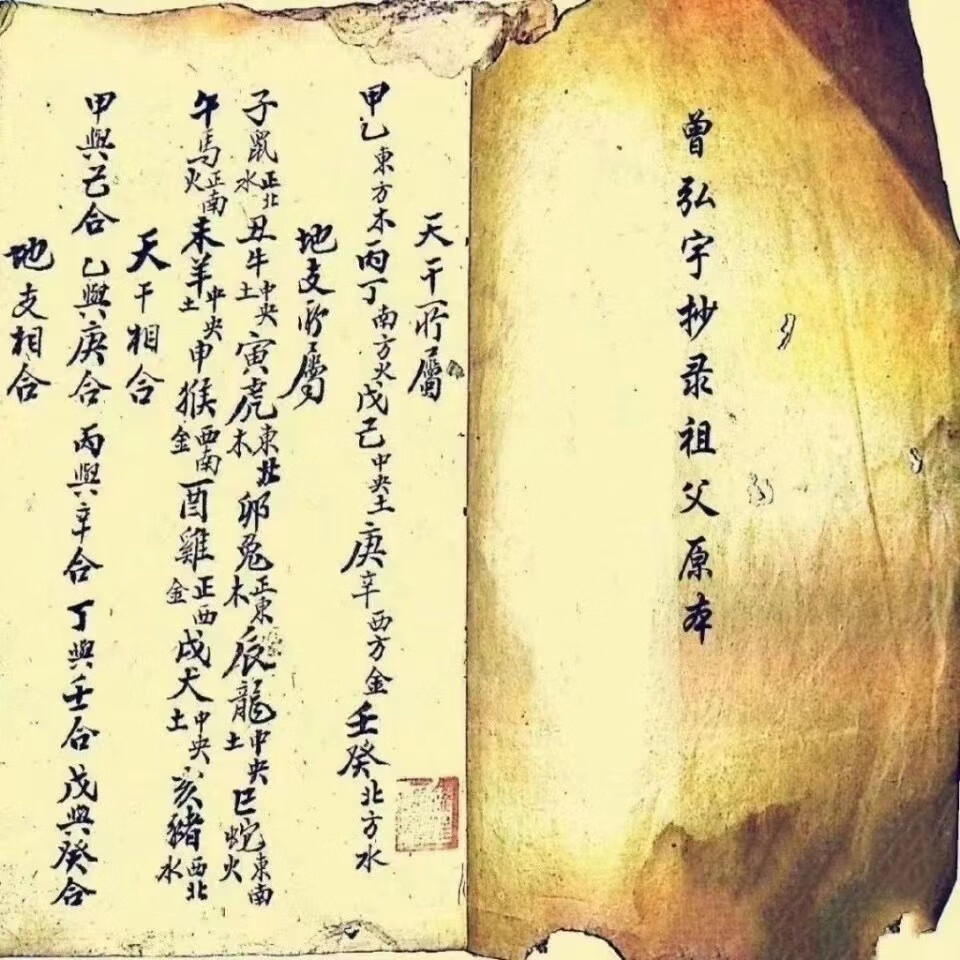 曾弘宇抄录祖父原本
天干所屬
甲乙東方木丙丁南方火戊己中央土庚辛西方金壬癸北方水
地支所屬
子鼠正北水丑牛中央土寅虎東北木卯兔正東木辰龍中央土巳蛇東南火
午馬正南火未羊中央土申猴西南金酉雞正西金戌犬中央土亥豬西北水
天干相合
甲與己合乙與庚合丙與辛合丁與壬合戊與癸合
地支相合